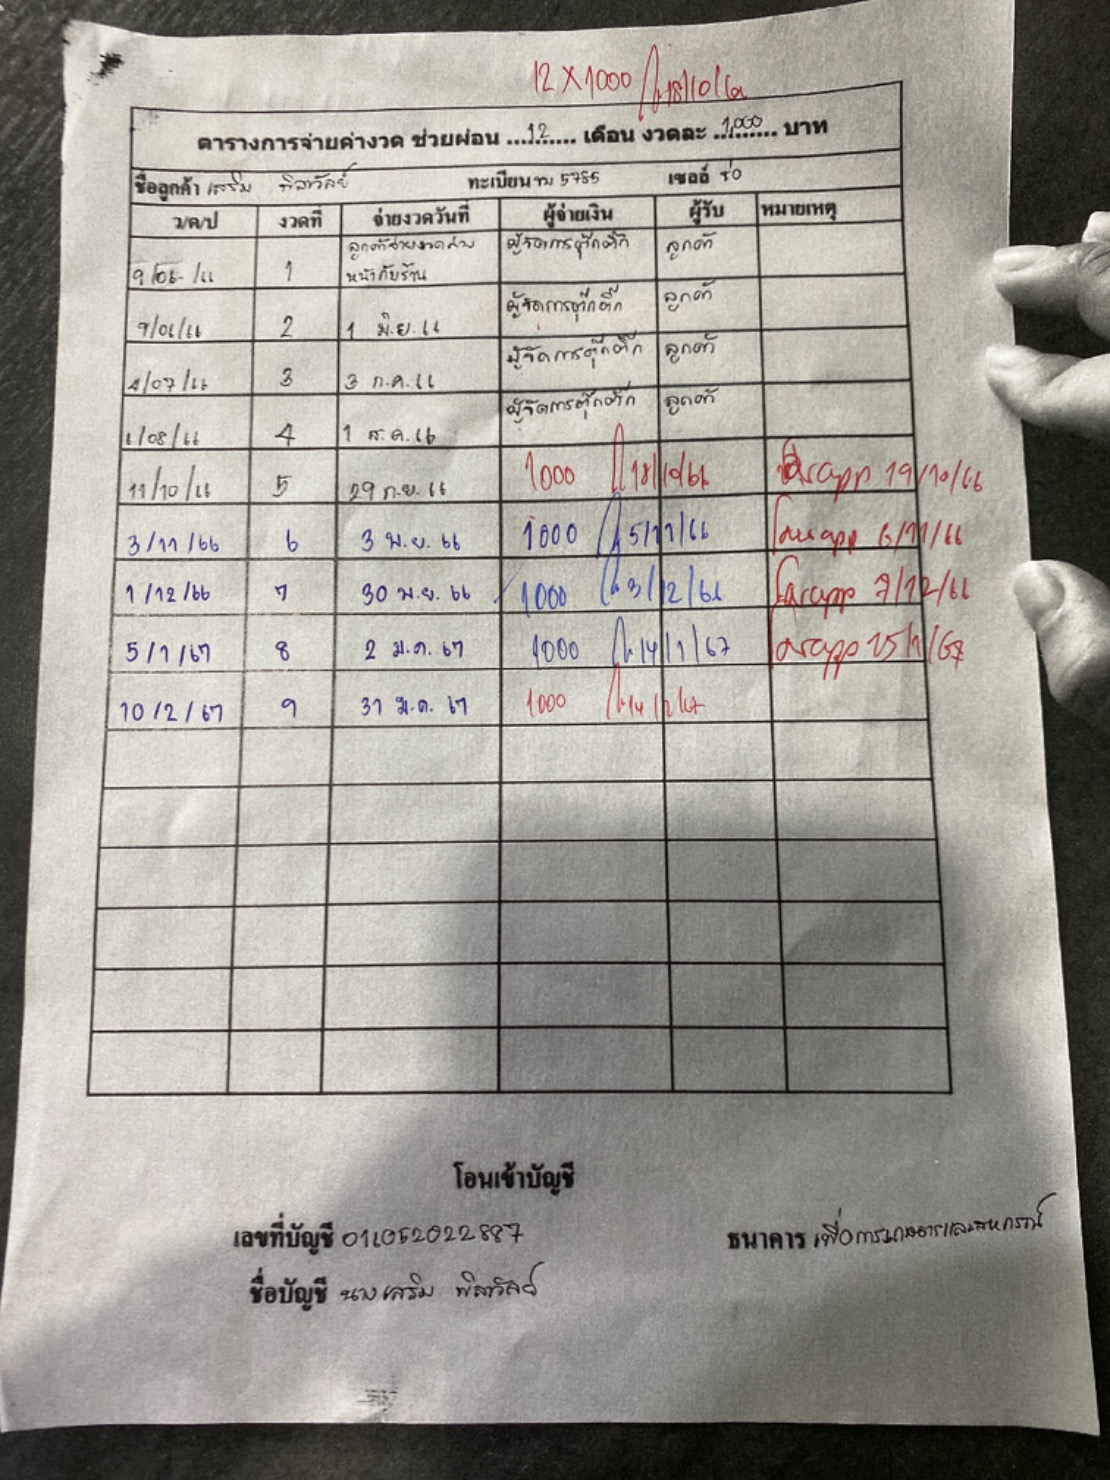 12 X 1000 18/10/66
ตารางการจ่ายค่างวด ช่วยผ่อน ...12.... เดือน งวดละ ..1,000.. บาท
ชื่อลูกค้า เสริม พิลาวัลย์ ทะเบียน 5785 เซลล์
ว/ด/ป งวดที่ จ่ายงวดวันที่ ผู้จ่ายเงิน ผู้รับ หมายเหตุ
ลูกค้าจ่ายงวดล่วง ผู้จัดการตุ๊กติ๊ก ลูกค้า
9/06/66 1 หน้ากับร้าน
9/06/66 2 1 มิ.ย. 66 ผู้จัดการตุ๊กติ๊ก ลูกค้า
4/07/66 3 3 ก.ค. 66 ผู้จัดการตุ๊กติ๊ก ลูกค้า
1/08/66 4 1 ส.ค. 66 ผู้จัดการตุ๊กติ๊ก ลูกค้า
11/10/66 5 29 ก.ย. 66 1000 18/10/66 โอนapp 19/10/66
3/11/66 6 3 พ.ย. 66 1000 5/11/66 โอนapp 6/11/66
1/12/66 7 30 พ.ย. 66 1000 3/12/66 โอนapp 7/12/66
5/1/67 8 2 ม.ค. 67 1000 14/1/67 โอนapp 15/1/67
10/2/67 9 31 ม.ค. 67 1000 14/2/67
โอนเข้าบัญชี
เลขที่บัญชี 011052022887 ธนาคาร เพื่อการเกษตรและสหกรณ์
ชื่อบัญชี นางเสริม พิลาวัลย์